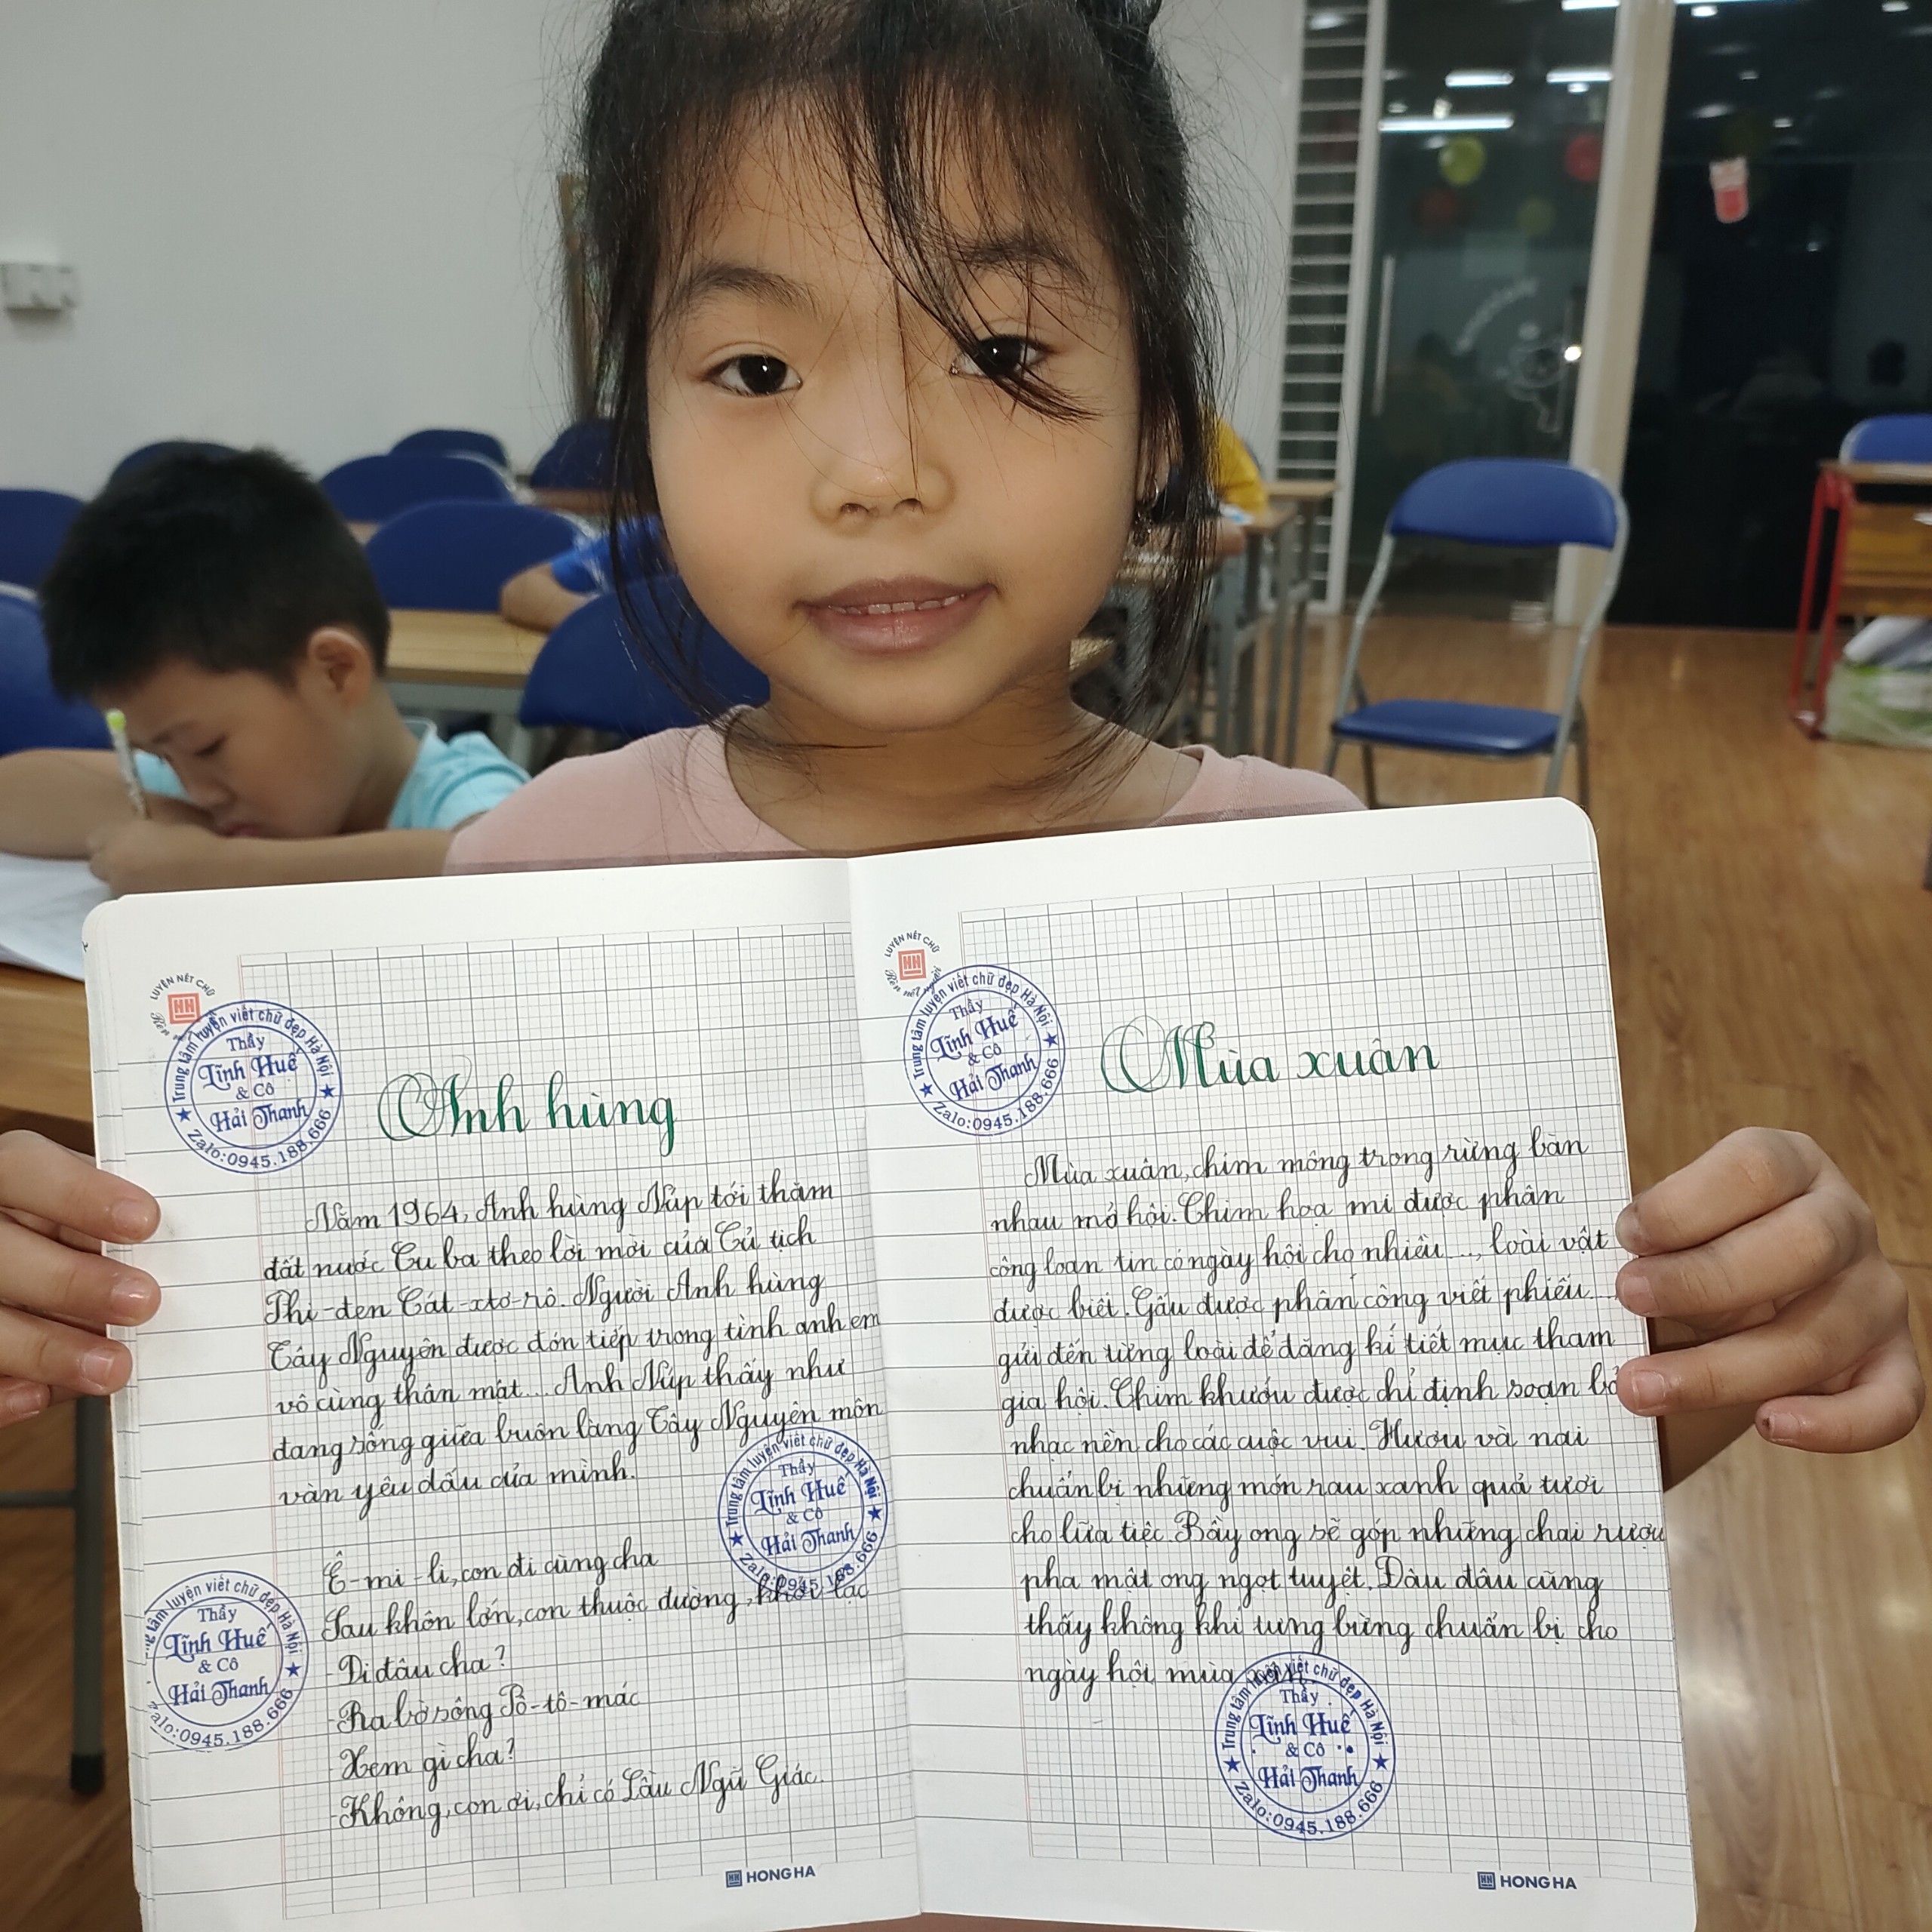 LUYỆN NÉT CHỮ
HH
Trung tâm luyện viết chữ đẹp Hà Nội
Thầy
Lĩnh Huế
& Cô
Hải Thanh
Zalo:0945.188.666
Anh hùng
Năm 1964, Anh hùng Núp tới thăm
đất nước Cu ba theo lời mời của Củ tịch
Phi-đen Cát-xtơ-rô. Người Anh hùng
Tây Nguyên được đón tiếp trong tình anh em
vô cùng thân mật... Anh Núp thấy như
đang sống giữa buôn làng Tây Nguyên môn
vàn yêu dấu của mình.
Trung tâm luyện viết chữ đẹp Hà Nội
Thầy
Lĩnh Huế
& Cô
Hải Thanh
Zalo:0945.188.666
Ê-mi-li, con đi cùng cha
Sau khôn lớn, con thuộc đường, khỏi lạc
- Đi đâu cha?
- Ra bờ sông Pô-tô-mác
- Xem gì cha?
- Không, con ơi, chỉ có Lầu Ngũ Giác.
tâm luyện viết chữ đẹp Hà Nội
Thầy
Lĩnh Huế
& Cô
Hải Thanh
Zalo:0945.188.666
HH HONG HA
LUYỆN NÉT CHỮ
HH
Rèn nết người
Trung tâm luyện viết chữ đẹp Hà Nội
Thầy
Lĩnh Huế
& Cô
Hải Thanh
Zalo:0945.188.666
Mùa xuân
Mùa xuân, chim mông trong rừng bàn
nhau mở hội. Chim họa mi được phân
công loan tin có ngày hội cho nhiều ..., loài vật
được biết. Gấu được phân công viết phiếu...
gửi đến từng loài để đăng kí tiết mục tham
gia hội. Chim khướu được chỉ định soạn bở
nhạc nền cho các cuộc vui. Hươu và nai
chuẩn bị những món rau xanh quả tươi
cho lữa tiệc. Bầy ong sẽ góp những chai rượu
pha mật ong ngọt tuyệt. Đàu đâu cũng
thấy không khí tưng bừng chuẩn bị cho
ngày hội mùa xuân.
Trung tâm luyện viết chữ đẹp Hà Nội
Thầy
Lĩnh Huế
& Cô
Hải Thanh
Zalo:0945.188.666
HH HONG HA